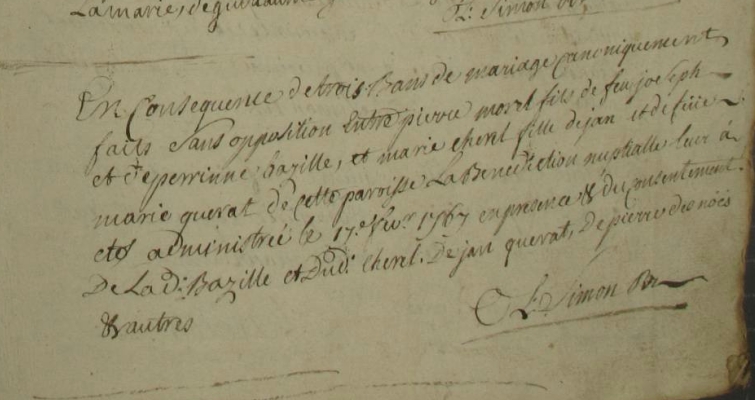 La marie, de
L: Simon
En Consequence de trois Bans de mariage canoniquement
faits sans opposition Entre pierre morel fils de feu joseph
et de perrinne bazille, et marie cherel fille de jan et de feüe
marie querat de cette paroisse La Benediction nuptialle leur á
etes administrée le 17e fevr 1767 en presence & du consentement
De La d: Bazille et Dud: cherel. De jan querat, De pierre des noës
& autres
L: Simon